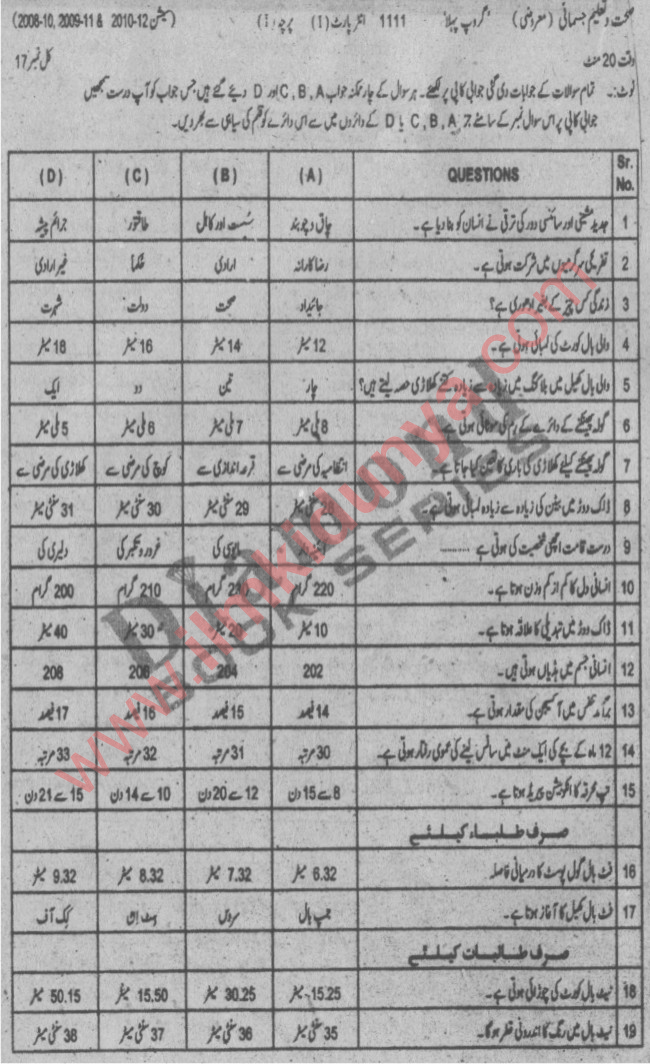 صحت و تعلیم جسمانی (معروضی) گروپ پہلا 1111 انٹر پارٹ (I) پرچہ (I) (سیشن 2010-12 & 2009-11, 2008-10)
وقت 20 منٹ کل نمبر 17
نوٹ:۔ تمام سوالات کے جوابات دی گئی جوابی کاپی پر لکھئے۔ ہر سوال کے چار ممکنہ جواب C, B, A اور D دیئے گئے ہیں جس جواب کو آپ درست سمجھیں
جوابی کاپی پر اس سوال نمبر کے سامنے C, B, A یا D کے دائروں میں سے اس دائرے کو قلم کی سیاہی سے بھر دیں۔
Sr. No. QUESTIONS (A) (B) (C) (D)
1 جدید مشینی اور سائنسی دور کی ترقی نے انسان کو بنا دیا ہے۔ چاق و چوبند سست اور کاہل طاقتور جرائم پیشہ
2 تفریحی سرگرمیوں میں شرکت ہوتی ہے۔ رضاکارانہ ارادی حکماً غیر ارادی
3 زندگی کس چیز کے بغیر ادھوری ہے؟ جائیداد صحت دولت شہرت
4 والی بال کورٹ کی لمبائی ہوتی ہے۔ 12 میٹر 14 میٹر 16 میٹر 18 میٹر
5 والی بال کھیل میں بلاکنگ میں زیادہ سے زیادہ کتنے کھلاڑی حصہ لیتے ہیں؟ چار تین دو ایک
6 گولہ پھینکنے کے دائرے کے رم کی موٹائی ہوتی ہے۔ 8 ملی میٹر 7 ملی میٹر 6 ملی میٹر 5 ملی میٹر
7 گولہ پھینکنے کیلئے کھلاڑی کی باری کا تعین کیا جاتا ہے۔ انتظامیہ کی مرضی سے قرعہ اندازی سے کوچ کی مرضی سے کھلاڑی کی مرضی سے
8 ڈاک دوڑ میں بیٹن کی زیادہ سے زیادہ لمبائی ہوتی ہے۔ 28 سنٹی میٹر 29 سنٹی میٹر 30 سنٹی میٹر 31 سنٹی میٹر
9 درست قامت اچھی شخصیت کی ہوتی ہے ........ غرور و تکبر کی دلیری کی
10 انسانی دل کا کم از کم وزن ہوتا ہے۔ 220 گرام گرام 210 گرام 200 گرام
11 ڈاک دوڑ میں تبدیلی کا علاقہ ہوتا ہے۔ 10 میٹر 20 میٹر 30 میٹر 40 میٹر
12 انسانی جسم میں ہڈیاں ہوتی ہیں۔ 202 204 206 208
13 برآمد تنفس میں آکسیجن کی مقدار ہوتی ہے۔ 14 فیصد 15 فیصد 16 فیصد 17 فیصد
14 12 ماہ کے بچے کی ایک منٹ میں سانس لینے کی عمومی رفتار ہوتی ہے۔ 30 مرتبہ 31 مرتبہ 32 مرتبہ 33 مرتبہ
15 تپ محرقہ کا انکوبیشن پیریڈ ہوتا ہے۔ 8 سے 15 دن 12 سے 20 دن 10 سے 14 دن 15 سے 21 دن
صرف طلباء کیلئے
16 فٹ بال گول پوسٹ کا درمیانی فاصلہ 6.32 میٹر 7.32 میٹر 8.32 میٹر 9.32 میٹر
17 فٹ بال کھیل کا آغاز ہوتا ہے۔ جمپ بال سروس ہٹ اِن کِک آف
صرف طالبات کیلئے
18 نیٹ بال کورٹ کی چوڑائی ہوتی ہے۔ 15.25 میٹر 30.25 میٹر 15.50 میٹر 50.15 میٹر
19 نیٹ بال میں رنگ کا اندرونی قطر ہو گا۔ 35 سنٹی میٹر 36 سنٹی میٹر 37 سنٹی میٹر 38 سنٹی میٹر
Diamond
BOOK SERIES
www.ilmkidunya.com